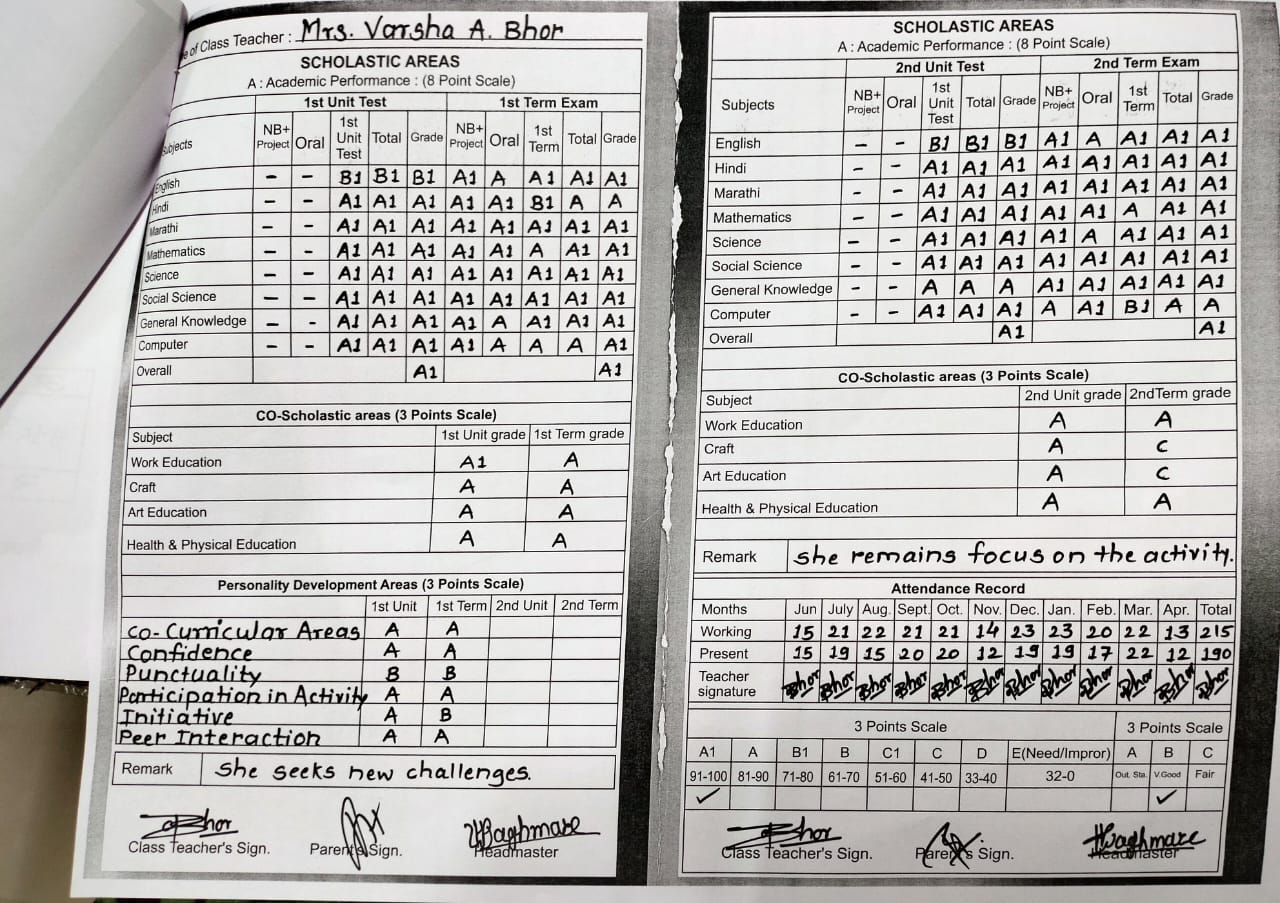 e of Class Teacher : Mrs. Varsha A. Bhor
SCHOLASTIC AREAS
A : Academic Performance : (8 Point Scale)
1st Unit Test 1st Term Exam
Subjects NB+ Project Oral 1st Unit Test Total Grade NB+ Project Oral 1st Term Total Grade
English – – B1 B1 B1 A1 A A1 A1 A1
Hindi – – A1 A1 A1 A1 A1 B1 A A
Marathi – – A1 A1 A1 A1 A1 A1 A1 A1
Mathematics – – A1 A1 A1 A1 A1 A A1 A1
Science – – A1 A1 A1 A1 A A1 A1 A1
Social Science – – A1 A1 A1 A1 A1 A1 A1 A1
General Knowledge – – A1 A1 A1 A1 A A1 A1 A1
Computer – – A1 A1 A1 A1 A A A A1
Overall A1 A1
CO-Scholastic areas (3 Points Scale)
Subject 1st Unit grade 1st Term grade
Work Education A1 A
Craft A A
Art Education A A
Health & Physical Education A A
Personality Development Areas (3 Points Scale)
1st Unit 1st Term 2nd Unit 2nd Term
Co-Curricular Areas A A
Confidence A A
Punctuality B B
Participation in Activity A A
Initiative A B
Peer Interaction A A
Remark She seeks new challenges.
Bhor
Class Teacher's Sign. Parent's Sign. Headmaster
SCHOLASTIC AREAS
A : Academic Performance : (8 Point Scale)
2nd Unit Test 2nd Term Exam
Subjects NB+ Project Oral 1st Unit Test Total Grade NB+ Project Oral 1st Term Total Grade
English – – B1 B1 B1 A1 A A1 A1 A1
Hindi – – A1 A1 A1 A1 A1 A1 A1 A1
Marathi – – A1 A1 A1 A1 A1 A1 A1 A1
Mathematics – – A1 A1 A1 A1 A1 A A1 A1
Science – – A1 A1 A1 A1 A A1 A1 A1
Social Science – – A1 A1 A1 A1 A1 A1 A1 A1
General Knowledge – – A A A A1 A1 A1 A1 A1
Computer – – A1 A1 A1 A A1 B1 A A
Overall A1 A1
CO-Scholastic areas (3 Points Scale)
Subject 2nd Unit grade 2ndTerm grade
Work Education A A
Craft A C
Art Education A C
Health & Physical Education A A
Remark she remains focus on the activity.
Attendance Record
Months Jun July Aug. Sept. Oct. Nov. Dec. Jan. Feb. Mar. Apr. Total
Working 15 21 22 21 21 14 23 23 20 22 13 215
Present 15 19 15 20 20 12 19 19 17 22 12 190
Teacher signature Bhor Bhor Bhor Bhor Bhor Bhor Bhor Bhor Bhor Bhor Bhor Bhor
3 Points Scale 3 Points Scale
A1 A B1 B C1 C D E(Need/Impror) A B C
91-100 81-90 71-80 61-70 51-60 41-50 33-40 32-0 Out. Sta. V.Good Fair
✓ ✓
Bhor Waghmare
Class Teacher's Sign. Parent's Sign. Headmaster